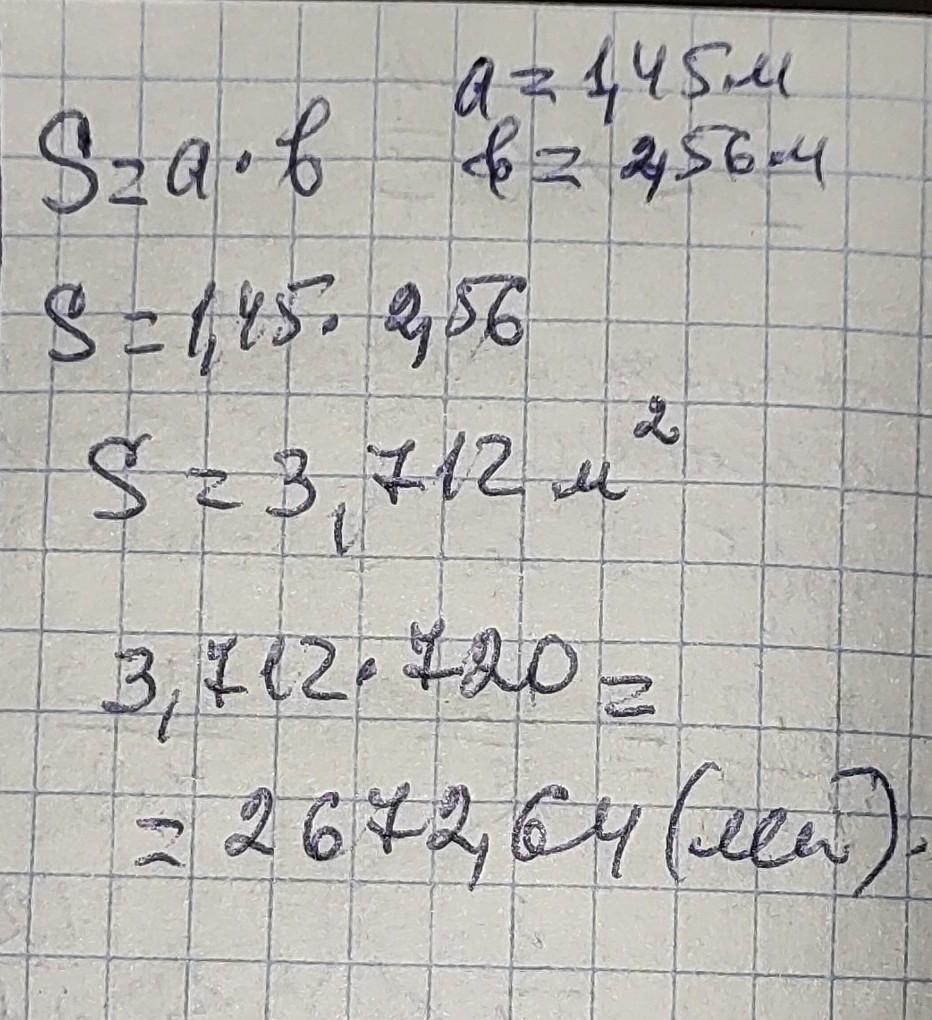 a = 1,45 м
S = a · b
b = 2,56 м
S = 1,45 · 2,56
S = 3,712 м²
3,712 · 720 =
= 2672,64 (лей).